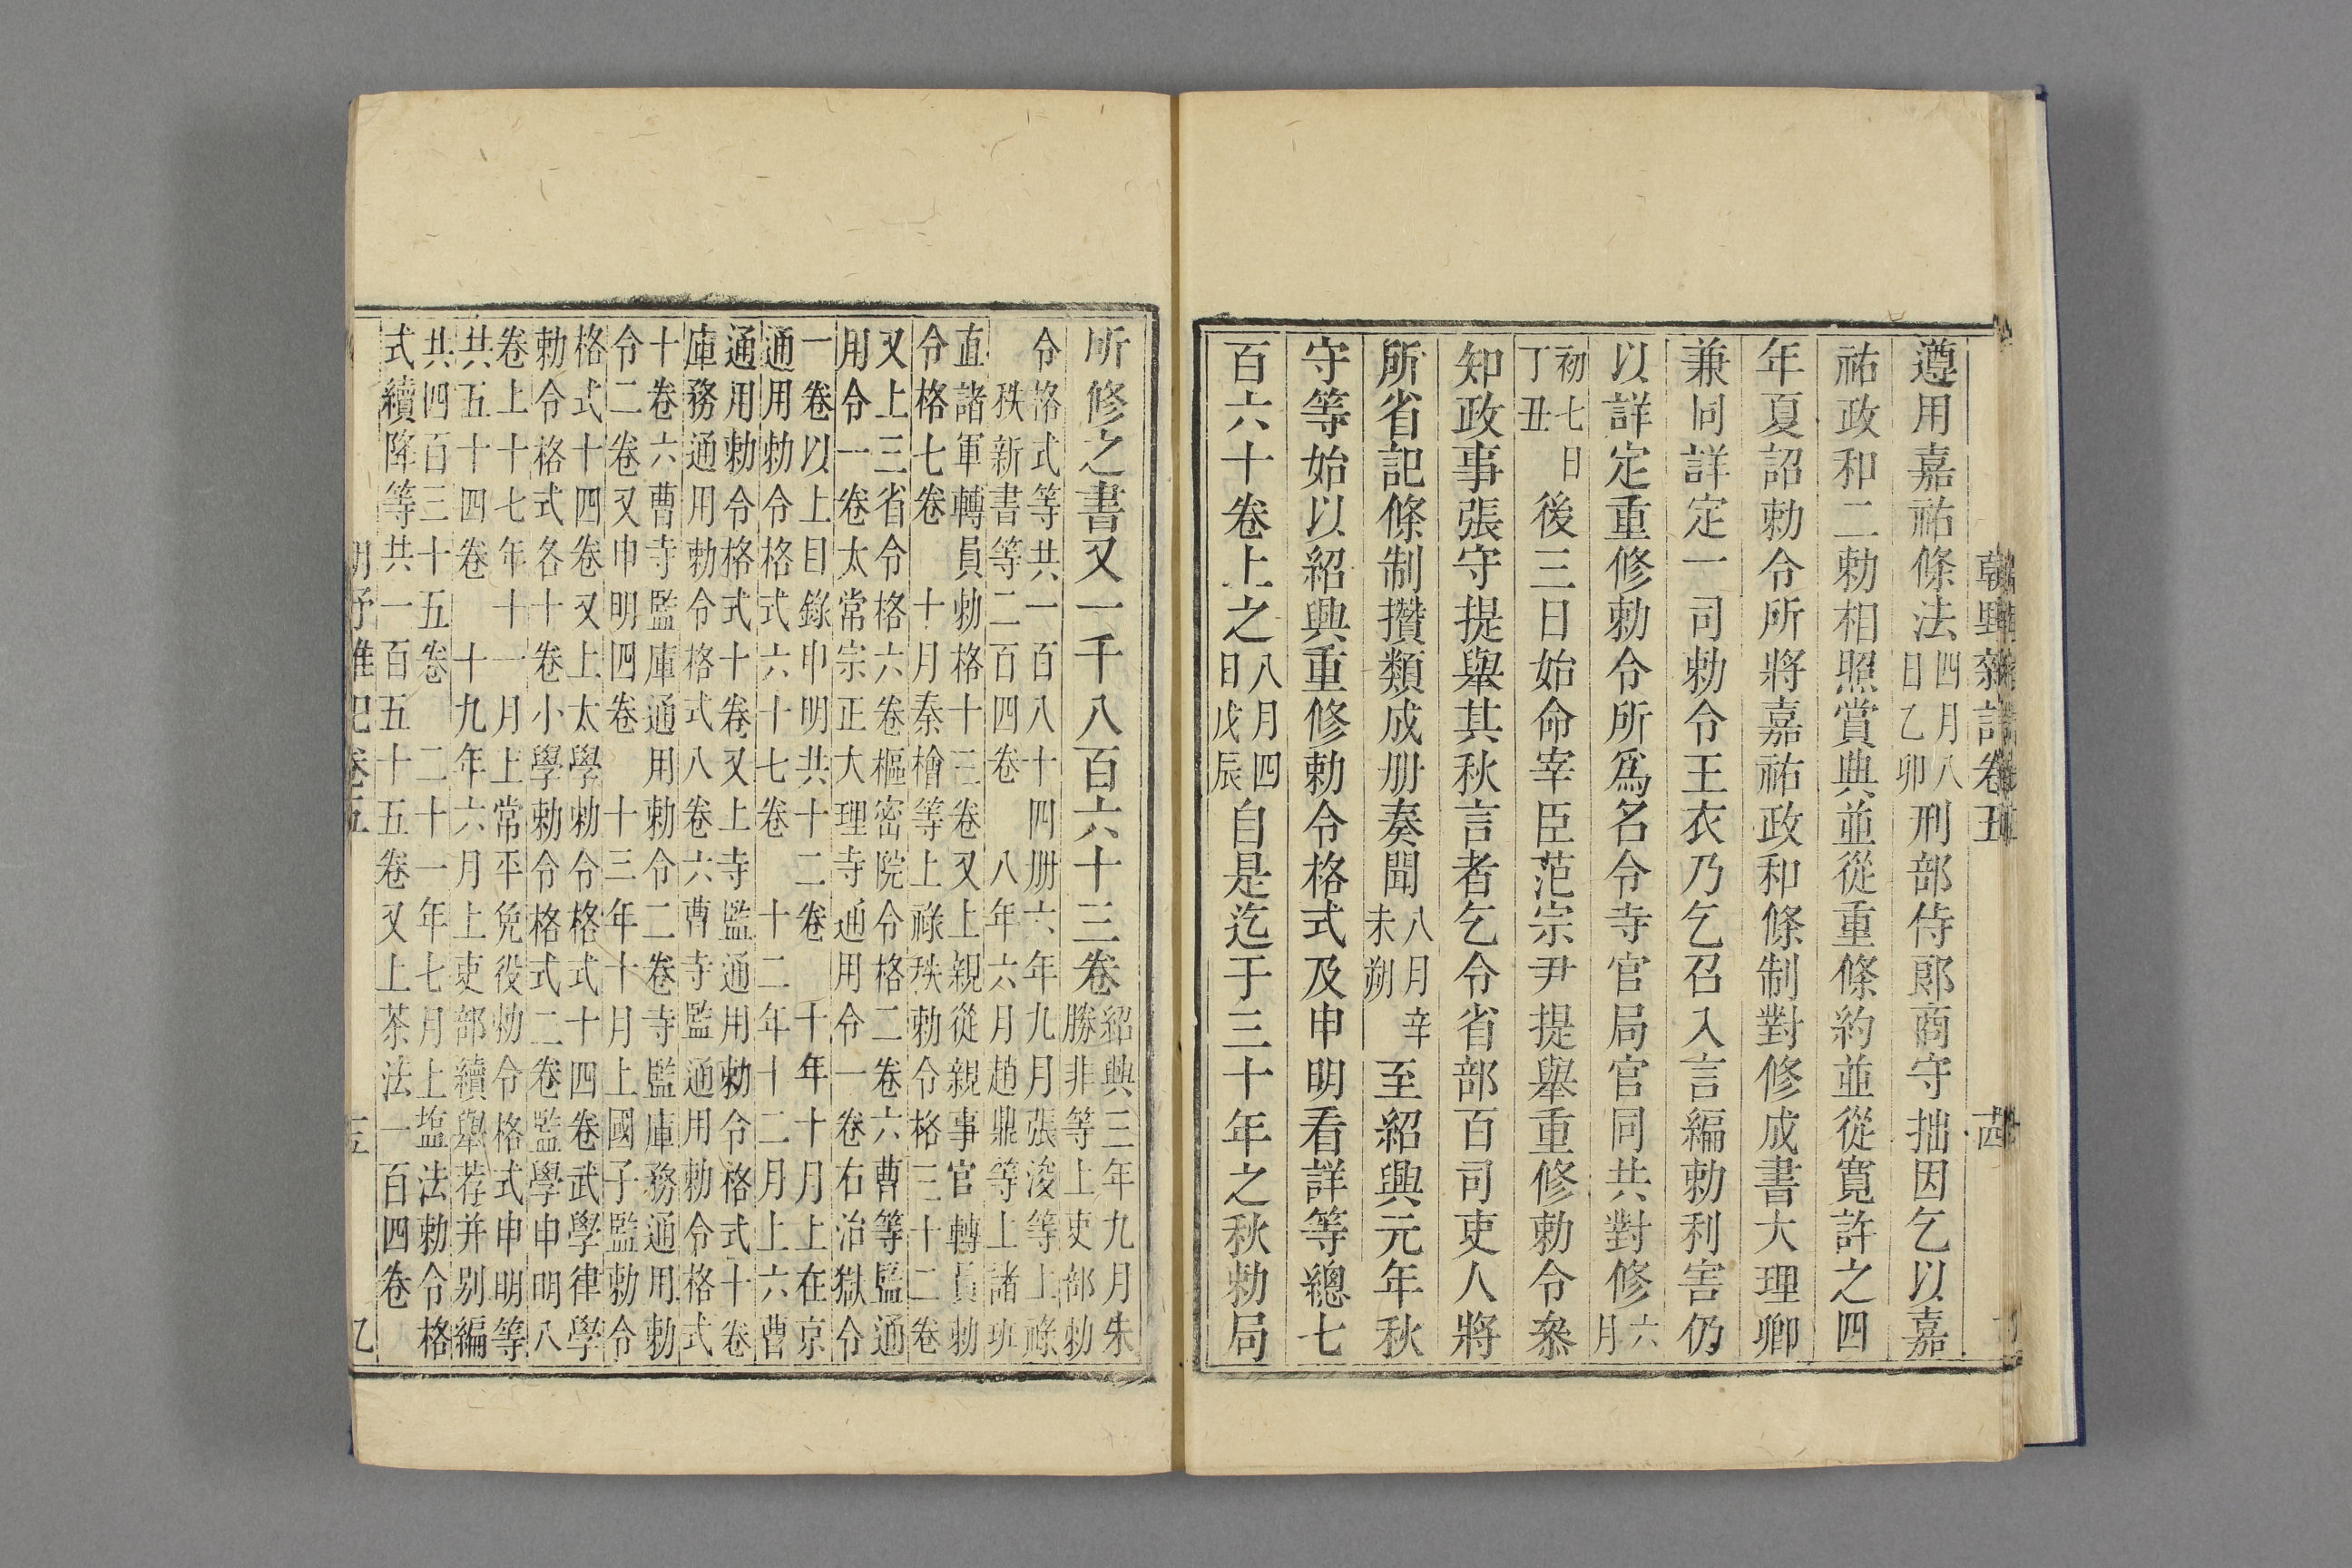 朝野雜記卷五
遵用嘉祐條法四月八日乙卯刑部侍郎商守拙因乞以嘉
祐政和二勅相照賞典並從重條約並從寬許之四
年夏詔勅令所將嘉祐政和條制對修成書大理卿
兼同詳定一司勅令王衣乃乞召入言編勅利害仍
以詳定重修勅令所爲名令寺官局官同共對修六月
初七日丁丑後三日始命宰臣范宗尹提舉重修勅令叅
知政事張守提舉其秋言者乞令省部百司吏人將
所省記條制攢類成册奏聞八月辛未朔至紹興元年秋
守等始以紹興重修勅令格式及申明看詳等總七
百六十卷上之八月四日戊辰自是迄于三十年之秋勅局
所修之書又一千八百六十三卷紹興三年九月朱
勝非等上吏部勅
令格式等共一百八十四册六年九月張浚等上祿
秩新書等二百四卷 八年六月趙鼎等上諸班
直諸軍轉員勅格十三卷又上親從親事官轉員勅
令格七卷 十月秦檜等上祿秩勅令格三十二卷
又上三省令格六卷樞密院令格二卷六曹等監通
用令一卷太常宗正大理寺通用令一卷右治獄令
一卷以上目錄申明共十二卷 十年十月上在京
通用勅令格式六十七卷 十二年十二月上六曹
通用勅令格式十卷又上寺監通用勅令格式十卷
庫務通用勅令格式八卷六曹寺監通用勅令格式
十卷六曹寺監庫通用勅令二卷寺監庫務通用勅
令二卷又申明四卷 十三年十月上國子監勅令
格式十四卷又上太學勅令格式十四卷武學律學
勅令格式各十卷小學勅令格式二卷監學申明八
卷上十七年十一月上常平免役勅令格式申明等
共五十四卷 十九年六月上吏部續舉荐并别編
共四百三十五卷 二十一年七月上塩法勅令格
式續降等共一百五十五卷又上茶法一百四卷